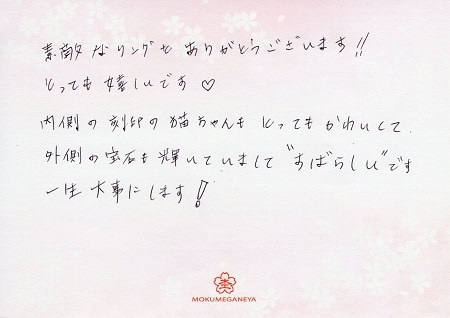 素敵なリングをありがとうございます!!
とっても嬉しいです♡
内側の刻印の猫ちゃんもとってもかわいくて
外側の宝石も輝いていまして“すばらしい”です
一生大事にします!
杢
MOKUMEGANEYA